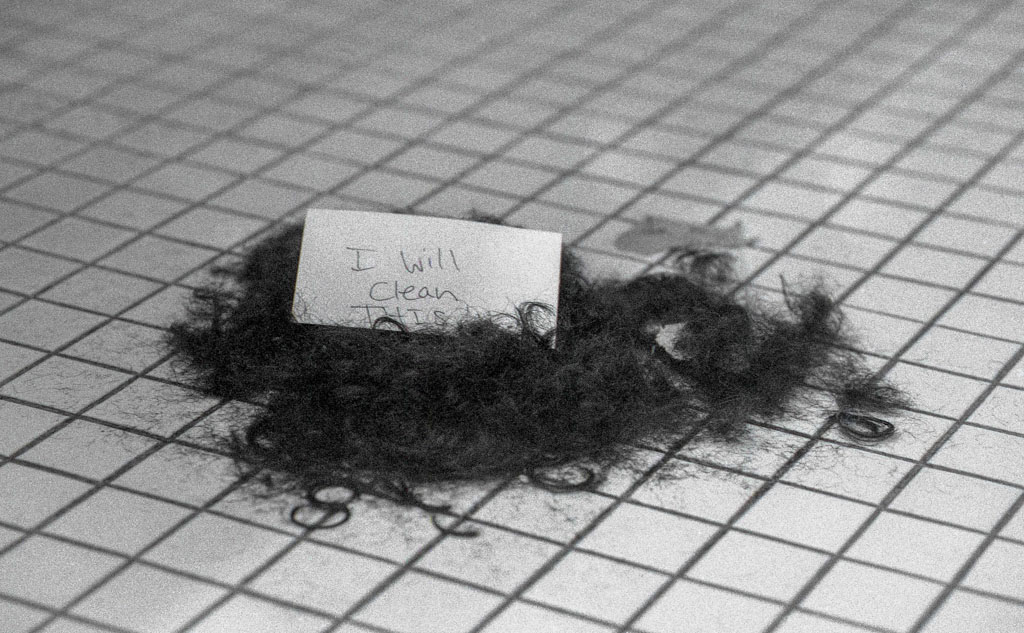 I Will
Clean
THIS